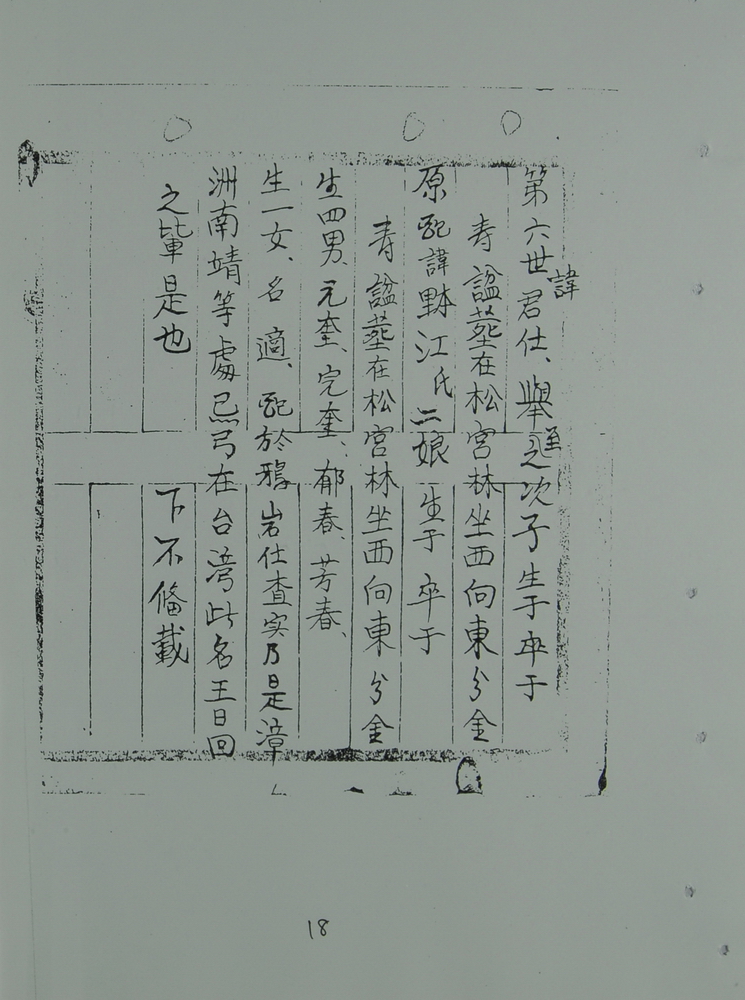 第六世諱君仕、舉進之次子生于卒于
寿諡塟在松宮林坐西向東分金
原配諱野江氏二娘生于卒于
寿諡塟在松宮林坐西向東分金
生四男、元奎、完奎、郁春、芳春、
生一女、名適、配於鴉岩仕查实乃是漳
洲南靖等處 弓在台湾此名王日回
之輩是也 下不偹載
18